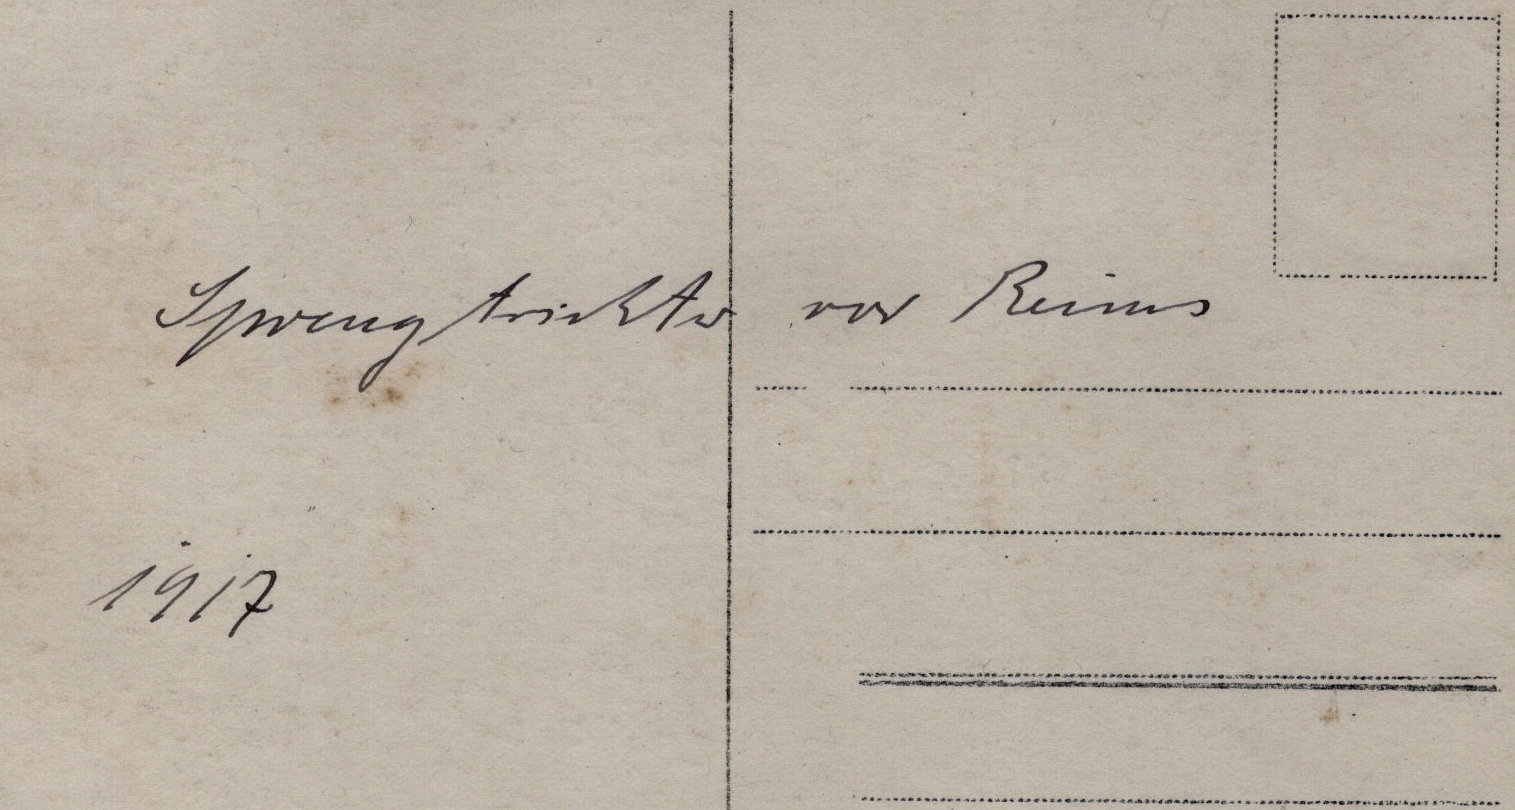 Sprengtrichter vor Reims
1917